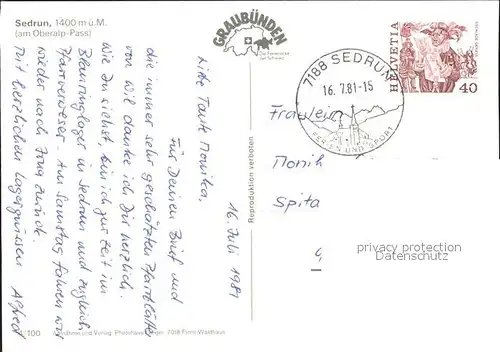 Sedrun, 1400 m ü. M.
(am Oberalp-Pass)
GRAUBÜNDEN
Die Ferienecke
der Schweiz
7188 SEDRUN
16.7.81-15
FERIEN UND SPORT
HELVETIA
40
16. Juli 1981
Liebe Tante Monika,
Für Deinen Brief und
die immer sehr geschätzten Pfarrblätter
von Wil danke ich Dir herzlich.
Wie Du siehst, bin ich zur Zeit im
Blauringlager in Sedrun und zugleich
Pfarrverweser. Am Samstag fahren wir
wieder nach Zug zurück.
Mit herzlichen Lagergrüssen
Alfred
Reproduktion verboten
Fräulein
Monik
Spita
privacy protection
AnsichtskartenVersand
/100
und Verlag: 7018 Flims-Waldhaus